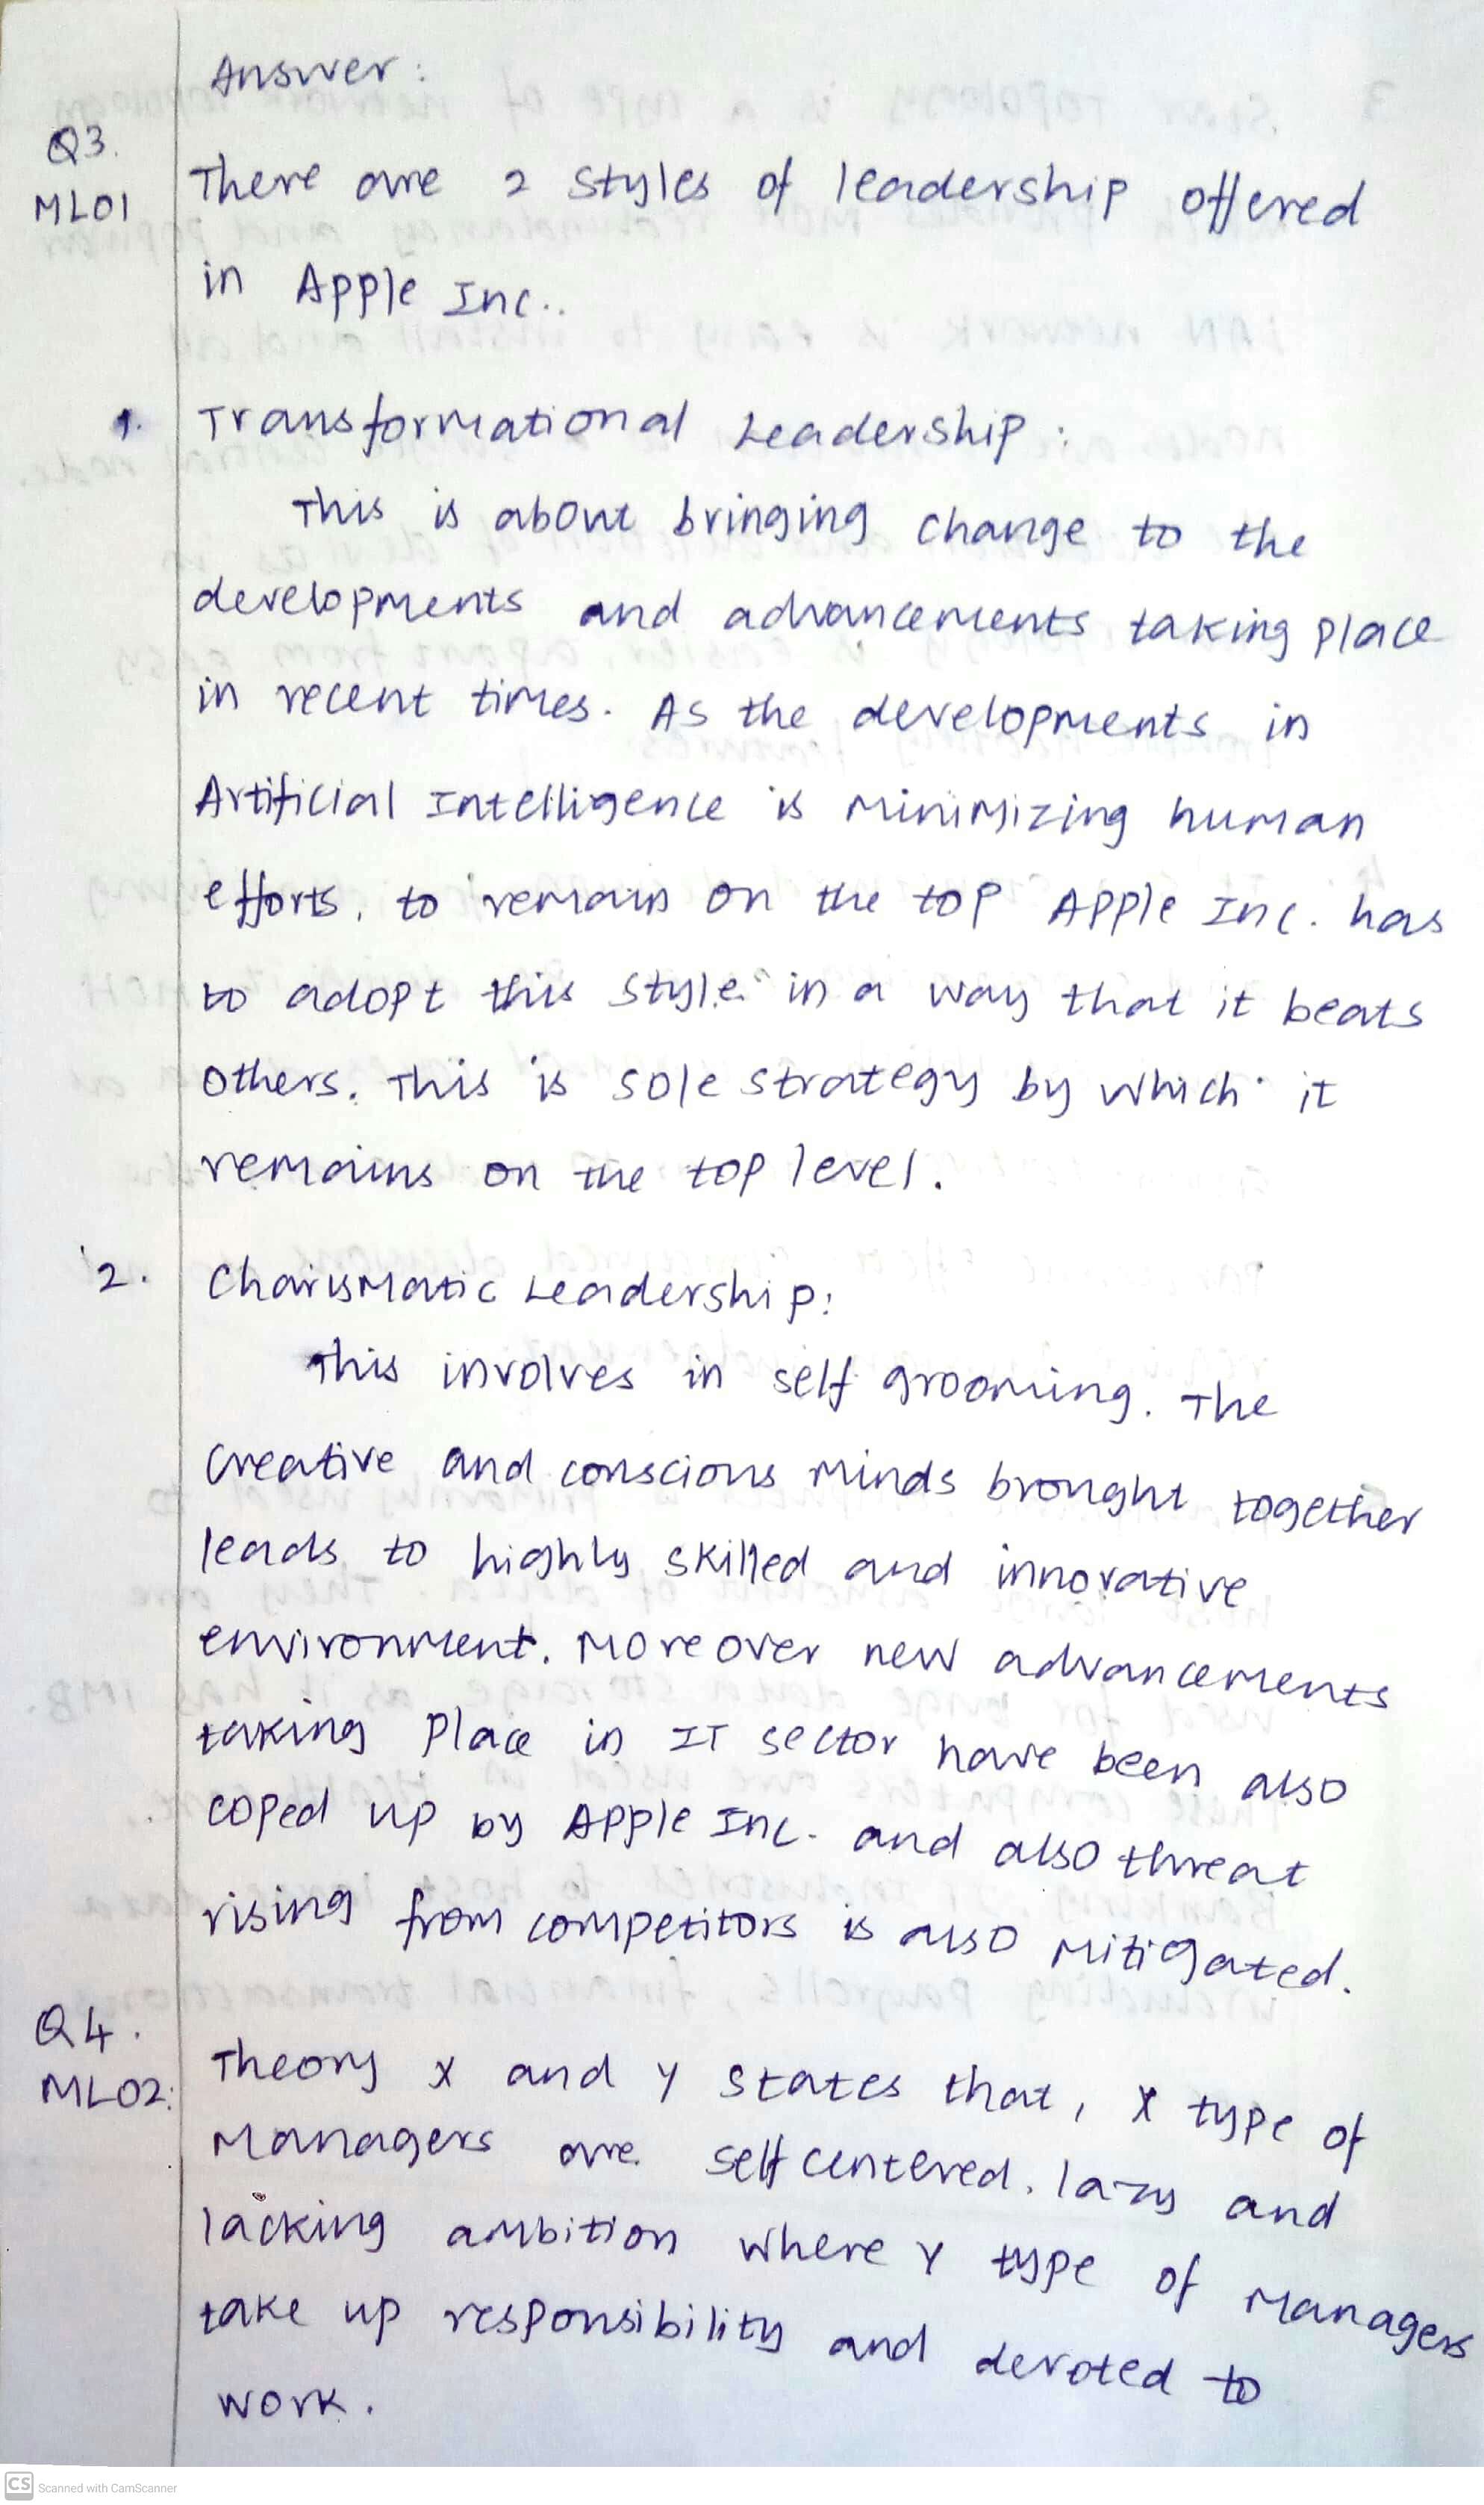 Answer:
Q3.
ML01
There are 2 styles of leadership offered
in Apple Inc..
1. Transformational Leadership:
This is about bringing change to the
developments and advancements taking place
in recent times. As the developments in
Artificial Intelligence is minimizing human
efforts, to remain on the top Apple Inc. has
to adopt this style in a way that it beats
others. This is sole strategy by which it
remains on the top level.
2. Charismatic Leadership:
This involves in self grooming. The
creative and conscious minds brought together
leads to highly skilled and innovative
environment. Moreover new advancements
taking place in IT sector have been also
coped up by Apple Inc. and also threat
rising from competitors is also mitigated.
Q4.
ML02:
Theory X and Y states that, X type of
Managers are self centered, lazy and
lacking ambition where Y type of Managers
take up responsibility and devoted to
work.
CS Scanned with CamScanner